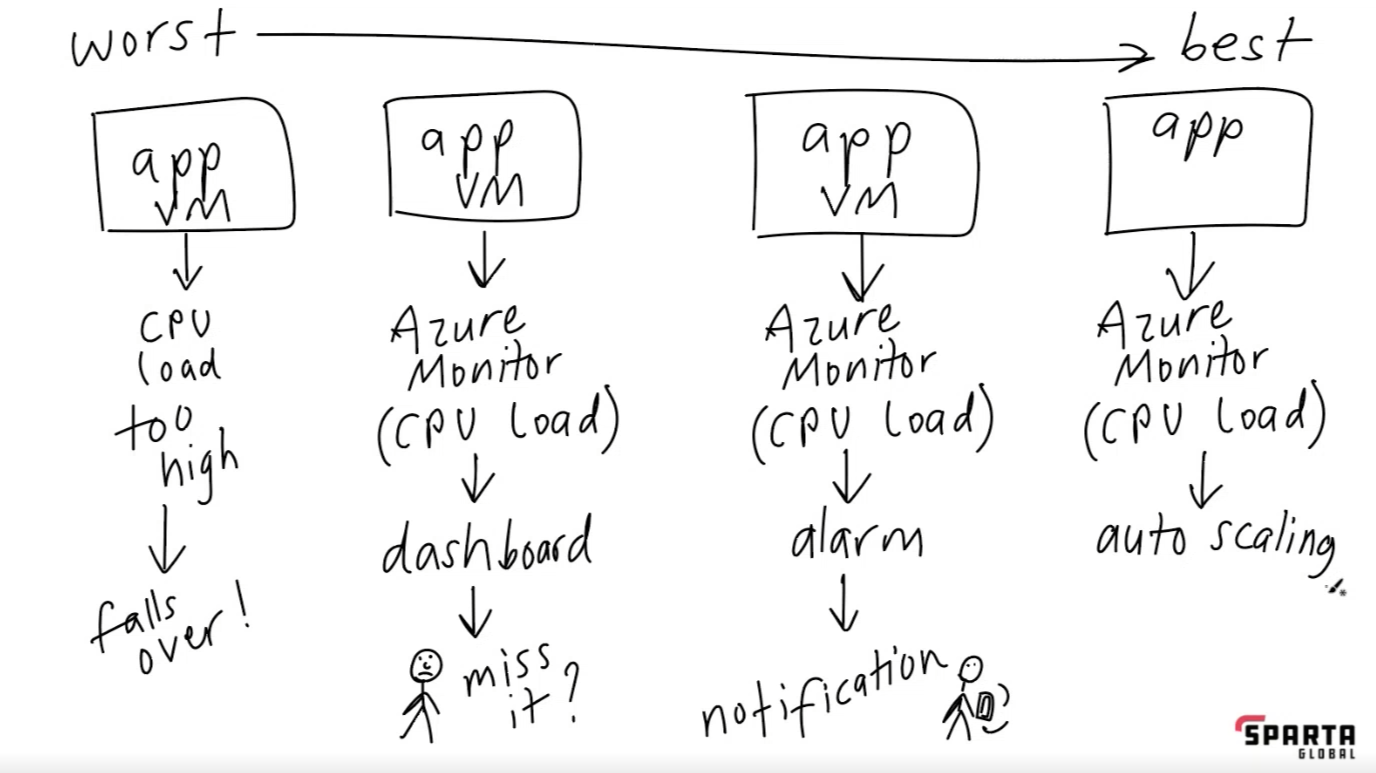 worst
best
app
VM
CPU
load
too
high
falls
over!
app
VM
Azure
Monitor
(CPU load)
dashboard
miss
it?
app
VM
Azure
Monitor
(CPU load)
alarm
notification
app
Azure
Monitor
(CPU load)
auto scaling
SPARTA
GLOBAL